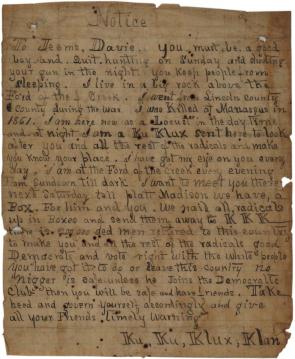 Notice
To Deems, Davie.. you, must, be, a good
boy. and. Quit. hunting on Sunday and shooting
your gun in the night. you keep people from
sleeping. I live in a big rock above the
Ford of the Creek. I went from Lincoln County
County during the War I was Killed at Manassus in
1861. I am here now as a Locust in the day Time
and at night I am a Ku Klux sent here to look
after you and all the rest of the radicals and make
you know your place. I have got my eye on you every
day, I am at the Ford of the creek every evening
From Sundown till dark I want to meet you there
next Saturday tell Matt Madison we have, a
Box. For him and you. We nail all, radicals
up in Boxes and send them away to KKK
there is. 200 000 ded men retured to this country
to make you and all the rest of the radicals good
Democrats and vote right with the white people
You have got it to do or leave this country no
nigger is safe unless he Joins the Democratic
Club then you will be safe and have friends. Take
heed and govern yourself accordingly and give
all your Friends timely warning
Ku, Ku, Klux, Klan